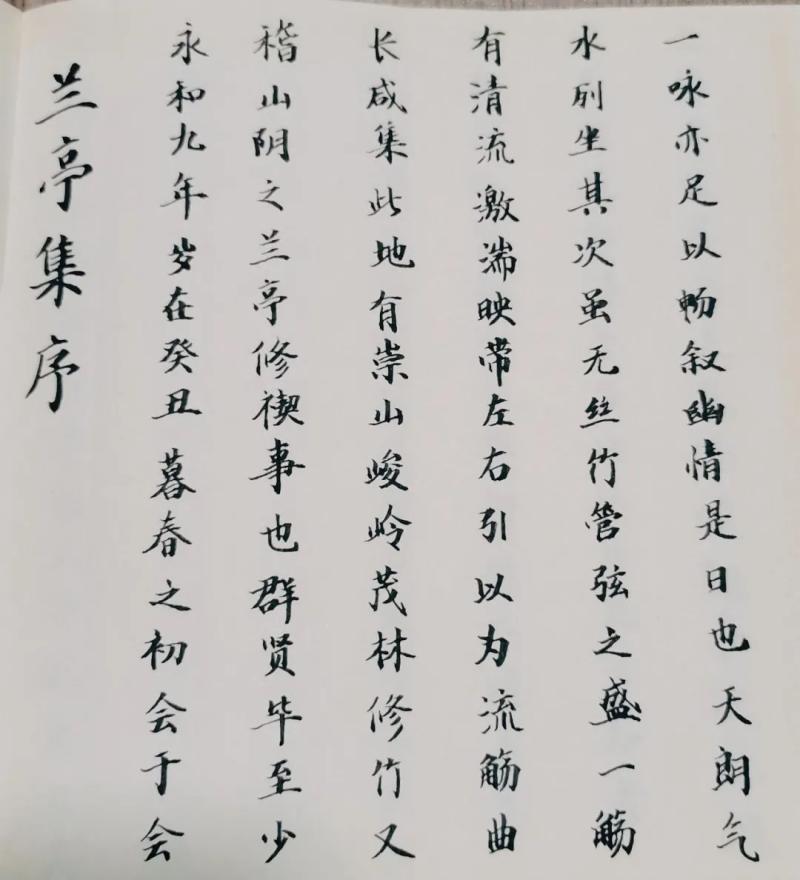 兰亭集序
永和九年岁在癸丑暮春之初会于会
稽山阴之兰亭修禊事也群贤毕至少
长咸集此地有崇山峻岭茂林修竹又
有清流激湍映带左右引以为流觞曲
水列坐其次虽无丝竹管弦之盛一觞
一咏亦足以畅叙幽情是日也天朗气